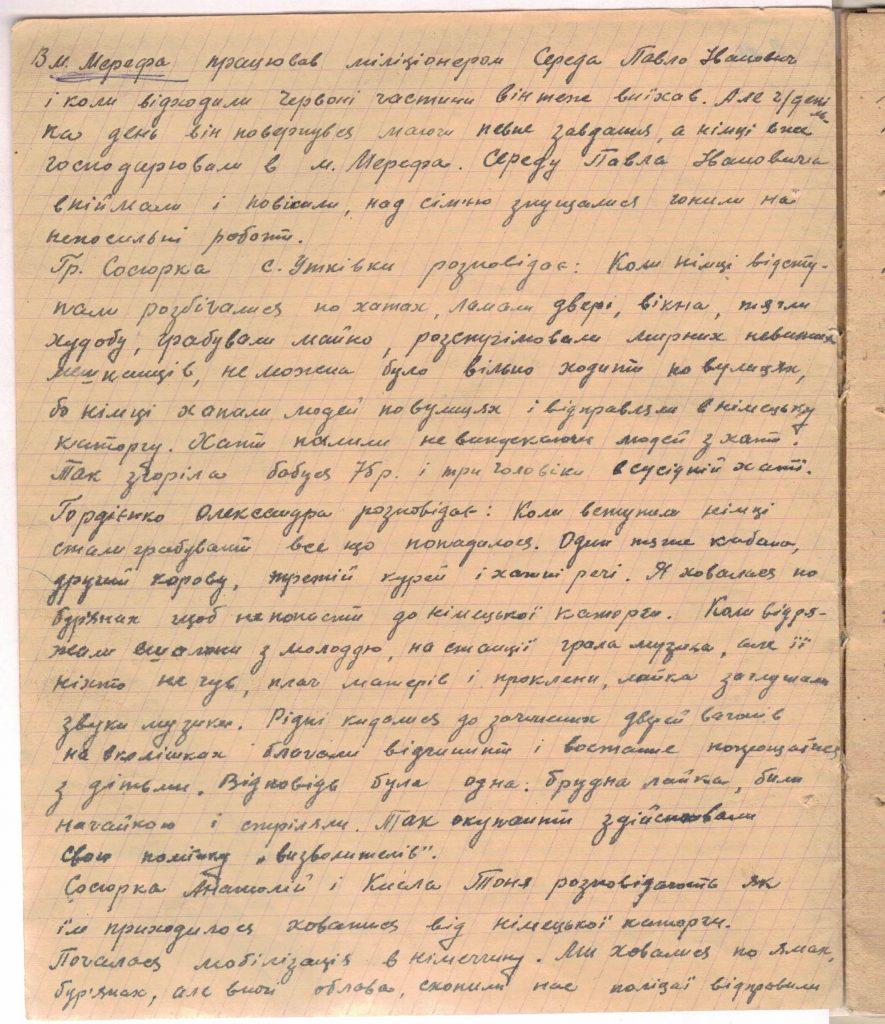 В м. Мерефа працював міліціонером Середа Павло Іванович
і коли відходили Червоні частини він теж виїхав. Але ч/
на день він повернувся маючи певне завдання, а німці вже
господарювали в м. Мерефа. Середу Павла Івановича
впіймали і повісили, над сім'ю знущалися гонили на
непосильні роботи.
Гр. Сосюрка с. Утківки розповідає: Коли німці відсту-
пали розбігалися по хатах, ламали двері, вікна, тягли
худобу, грабували майно, розстрілювали мирних невинних
мешканців, не можна було вільно ходити по вулицях,
бо німці хапали людей по вулицях і відправляли в німецьку
каторгу. Хати палили не випускаючи людей з хат.
Так згоріла бабуся 76р. і три чоловіки в сусідній хаті.
Гордієнко Олександра розповідає: Коли вступили німці
стали грабувати все що попадалося. Один тягне кабана,
другий корову, третій курей і хатні речі. Я ховалася по
бур'янах щоб не попасти до німецької каторги. Коли відря-
жали ешалони з молоддю, на станції грала музика, але її
ніхто не чув, плач матерів і проклени, лайка заглушали
звуки музики. Рідні кидалися до зачинених дверей вагонів
на вколішках благали відчинити і востаннє попрощатися
з дітьми. Відповідь була одна: брудна лайка, били
нагайкою і стріляли. Так окупанти здійснювали
свою політику „визволителів".
Сосюрка Анатолій і Кисла Тоня розповідають як
їм приходилося ховатися від німецької каторги.
Почалася мобілізація в німеччину. Ми ховалися по ямах,
бур'янах, але вночі облава, схопили нас поліцаї відправили